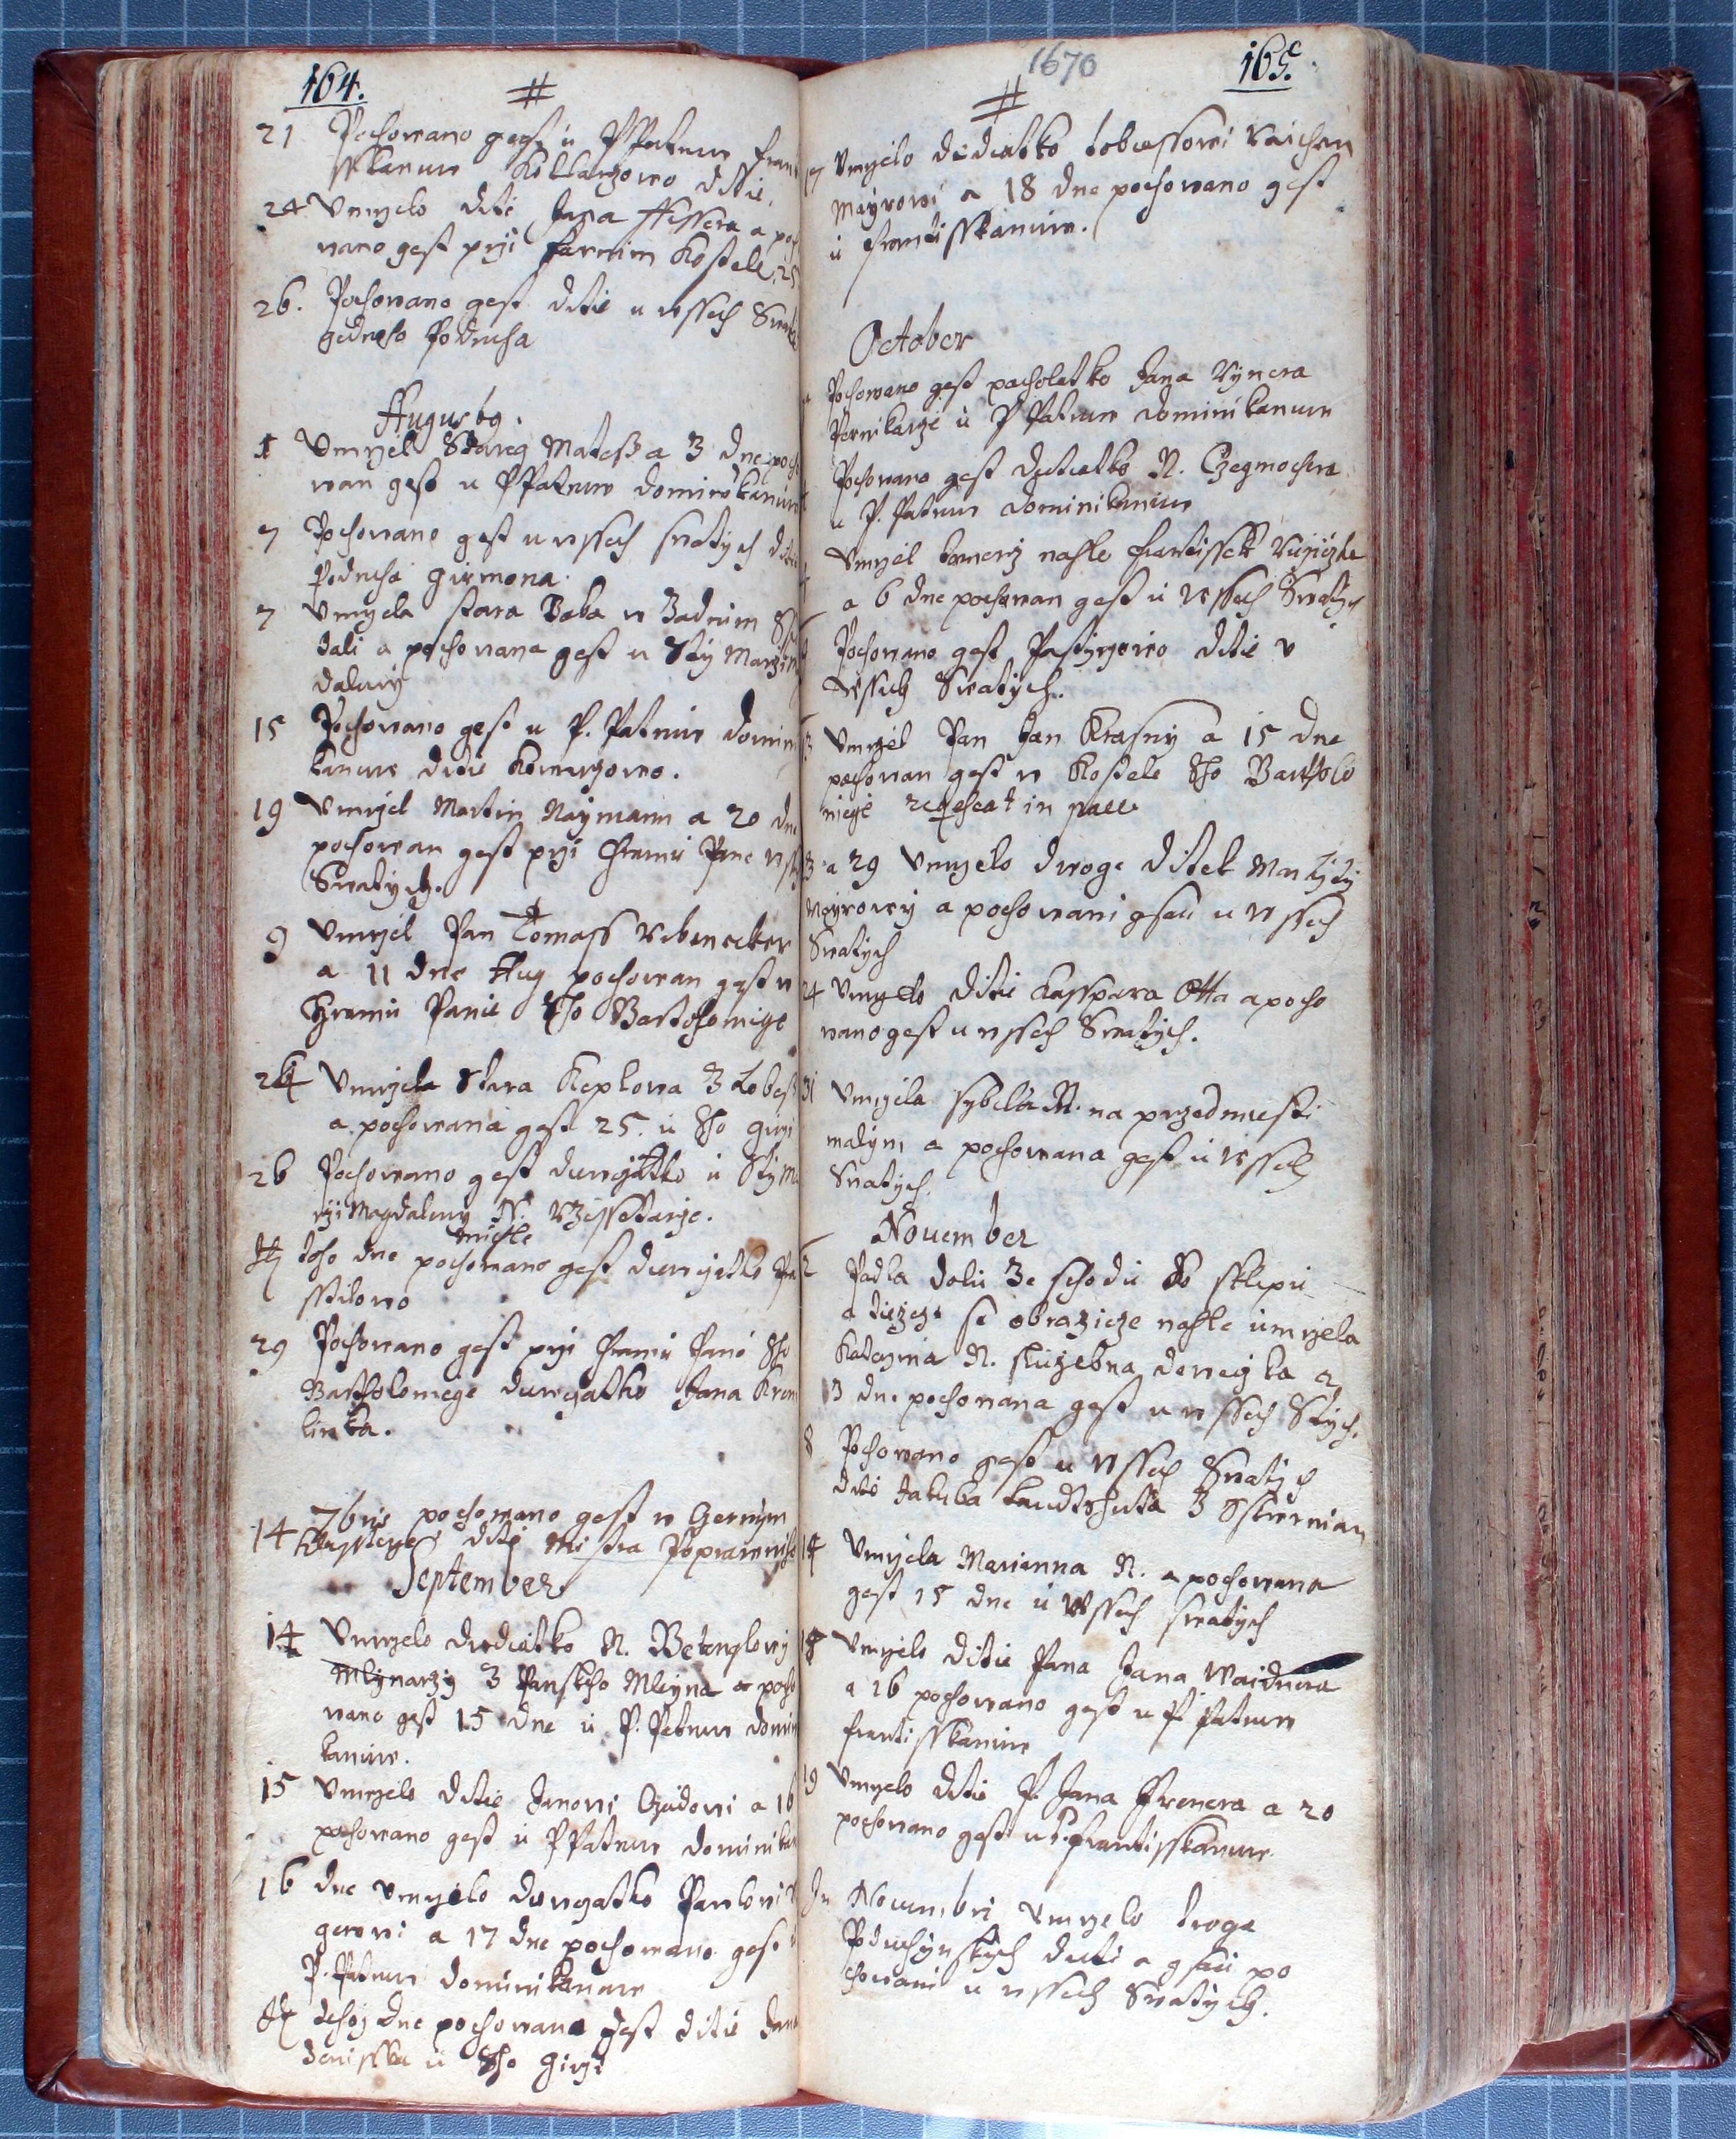 164.
#
21 Pochowano gest u PPatruw fran
sskanuw Kollarzowo ditie.
24 Vmrzelo ditie Jana Hessera a poch
wano gest przi farnim Kostele 25
26. Pochowano gest ditie u wssech Swat
gednoho Podruha
Augustg.
1 Vmrzel Starey Matess a 3 dne poch
wan gest u PPatruw dominikanuw
7 Pochowano gest u wssech swatych ditie
Podruha Girmona.
7 Vmrzela stara Baba w Zadnim Sspi
tali a pochowana gest u Sty Marzi
daleny
15 Pochowano gest u P. Patruw domin
kanuw ditie
19 Vmrzel Martin Naymann a 20 dne
pochowan gest przi Chramu Pane wss
Swatych.
9 Vmrzel Pan Tomass
a 11 dne Aug pochowan gest w
Chramu Panie Sho Bartholomige
24 Vmrzela Stara Keplowa z Lobess
a pochowana gest 25. u Sho Girzi
26 Pochowano gest dewcžatko u Sty Ma
rzi Magdaleny N.
It toho dne pochowano gest dewcžatko
sstilowo
29 Pochowano gest przi Chramu Pane Sho
Bartholomige dewcžatko Jana Krom
linka.
14 7bris pochowano gest w Gernym
ditie Mistra Poprawniho
September
14 Vmrzelo diediatko N.
Mlynarzy z Panskeho Mleyna a pocho
wano gest 15 dne u P. Patruw domin
kanuw.
15 Vmrzelo ditie Janowi a 16
pochowano gest u PPatruw dominikan
16 dne Vmrzelo dewcžatko Pawlowi
gerowi a 17 dne pochowano gest u
P. Patruw dominikanuw
It tehoz dne pochowana gest ditie Jana
u Sho Girzi
1670
165.
#
17 Vmrzelo diediatko tobiassowi
Mayrowi a 18 dne pochowano gest
u frantisskanuw.
October
Pochowano gest pacholatko Jana
Pernikarze u PPatruw dominikanuw
Pochowano gest diediatko N.
u P. Patruw dominikanuw
Vmrzel nahle frantissek
a 6 dne pochowan gest u wssech Swatych
Pochowano gest Pastyrzowo ditie v
wssech Swatych.
13 Vmrzel Pan Jan Krasny a 15 dne
pochowan gest w Kostele Sho Bartholo
miege requescat in pace
a 29 Vmrzelo dwoge ditek
Mayrowy a pochowani gsau u wssech
Swatych
24 Vmrzelo ditie Kasspara Otta a pocho
wano gest u wssech Swatych.
31 Vmrzela Sybela N. na przedmiesti
malym a pochowana gest u wssech
Swatych.
November
2 Padla dolu ze schodu do sklepu
a se obraziege nahle umrzela
Katerzina N. sluzebna dewcžka a
3 dne pochowana gest u wssech Stych.
8 Pochowano gest u wssech Swatych
ditie Jakuba z Skwrnian
14 Vmrzela Marianna N. a pochowana
gest 15 dne u wssech swatych
15 Vmrzelo ditie Pana Jana Waidnera
a 16 pochowano gest u P. Patruw
frantisskanuw
19 Vmrzelo ditie P. Jana a 20
pochowano gest u P. frantisskanuw
In Nouembri Vmrzelo troge
dieti a gsau po
chowani u wssech Swatych.